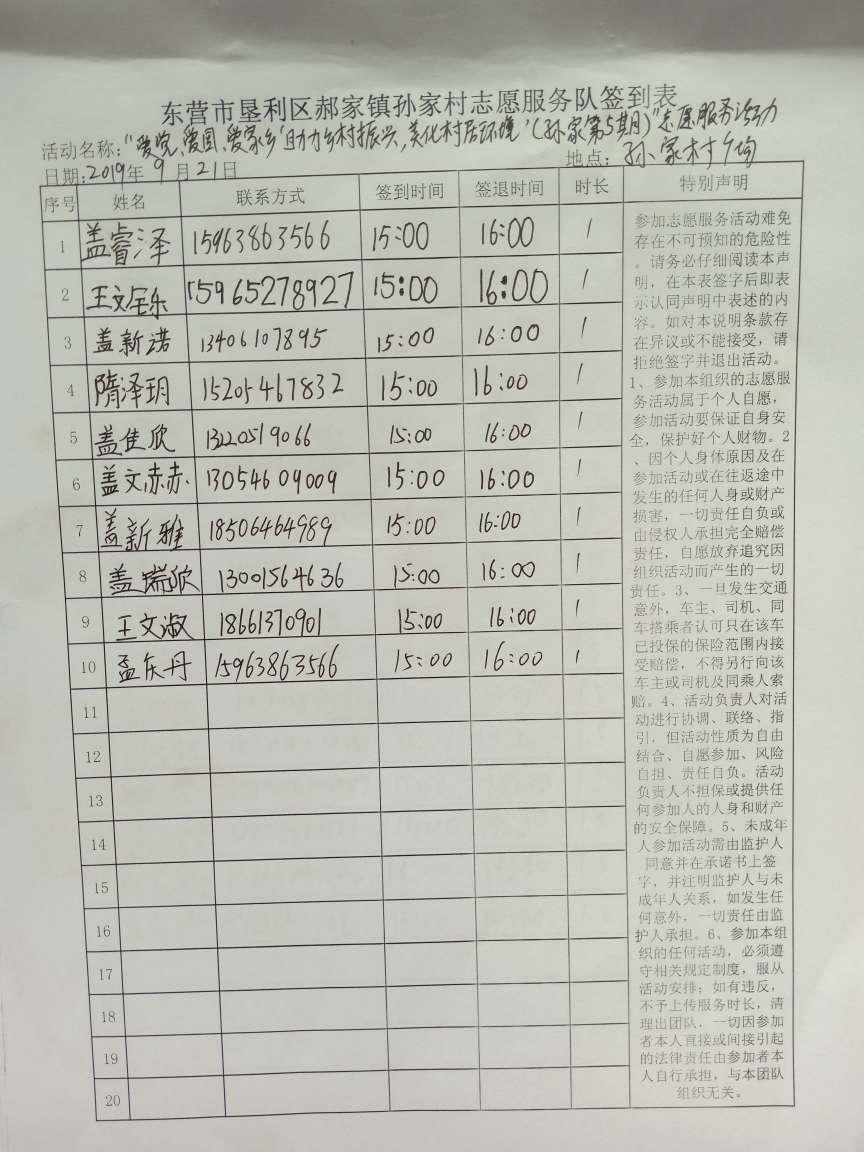 东营市垦利区郝家镇孙家村志愿服务队签到表
活动名称："爱党、爱国、爱家乡'助力乡村振兴,美化村居环境'(孙家第5期)"志愿服务活动
日期:2019年 9 月 21 日 地点：孙家村广场
序号 姓名 联系方式 签到时间 签退时间 时长 特别声明
1 盖睿泽 15963863566 15:00 16:00 1
2 王文 15965278927 15:00 16:00 1
3 盖新诺 13406107895 15:00 16:00 1
4 隋泽玥 15205467832 15:00 16:00 1
5 盖佳欣 13220519066 15:00 16:00 1
6 盖文赫 13054609009 15:00 16:00 1
7 盖新雅 18506464989 15:00 16:00 1
8 盖瑞欣 13001564636 15:00 16:00 1
9 王文淑 18661370901 15:00 16:00 1
10 孟庆丹 15963863566 15:00 16:00 1
11
12
13
14
15
16
17
18
19
20
参加志愿服务活动难免
存在不可预知的危险性
。请务必仔细阅读本声
明，在本表签字后即表
示认同声明中表述的内
容。如对本说明条款存
在异议或不能接受，请
拒绝签字并退出活动。
1、参加本组织的志愿服
务活动属于个人自愿，
参加活动要保证自身安
全，保护好个人财物。2
、因个人身体原因及在
参加活动或在往返途中
发生的任何人身或财产
损害，一切责任自负或
由侵权人承担完全赔偿
责任，自愿放弃追究因
组织活动而产生的一切
责任。3、一旦发生交通
意外，车主、司机、同
车搭乘者认可只在该车
已投保的保险范围内接
受赔偿，不得另行向该
车主或司机及同乘人索
赔。4、活动负责人对活
动进行协调、联络、指
引，但活动性质为自由
结合、自愿参加、风险
自担、责任自负。活动
负责人不担保或提供任
何参加人的人身和财产
的安全保障。5、未成年
人参加活动需由监护人
同意并在承诺书上签
字，并注明监护人与未
成年人关系，如发生任
何意外，一切责任由监
护人承担。6、参加本组
织的任何活动，必须遵
守相关规定制度，服从
活动安排；如有违反，
不予上传服务时长，清
理出团队，一切因参加
者本人直接或间接引起
的法律责任由参加者本
人自行承担，与本团队
组织无关。